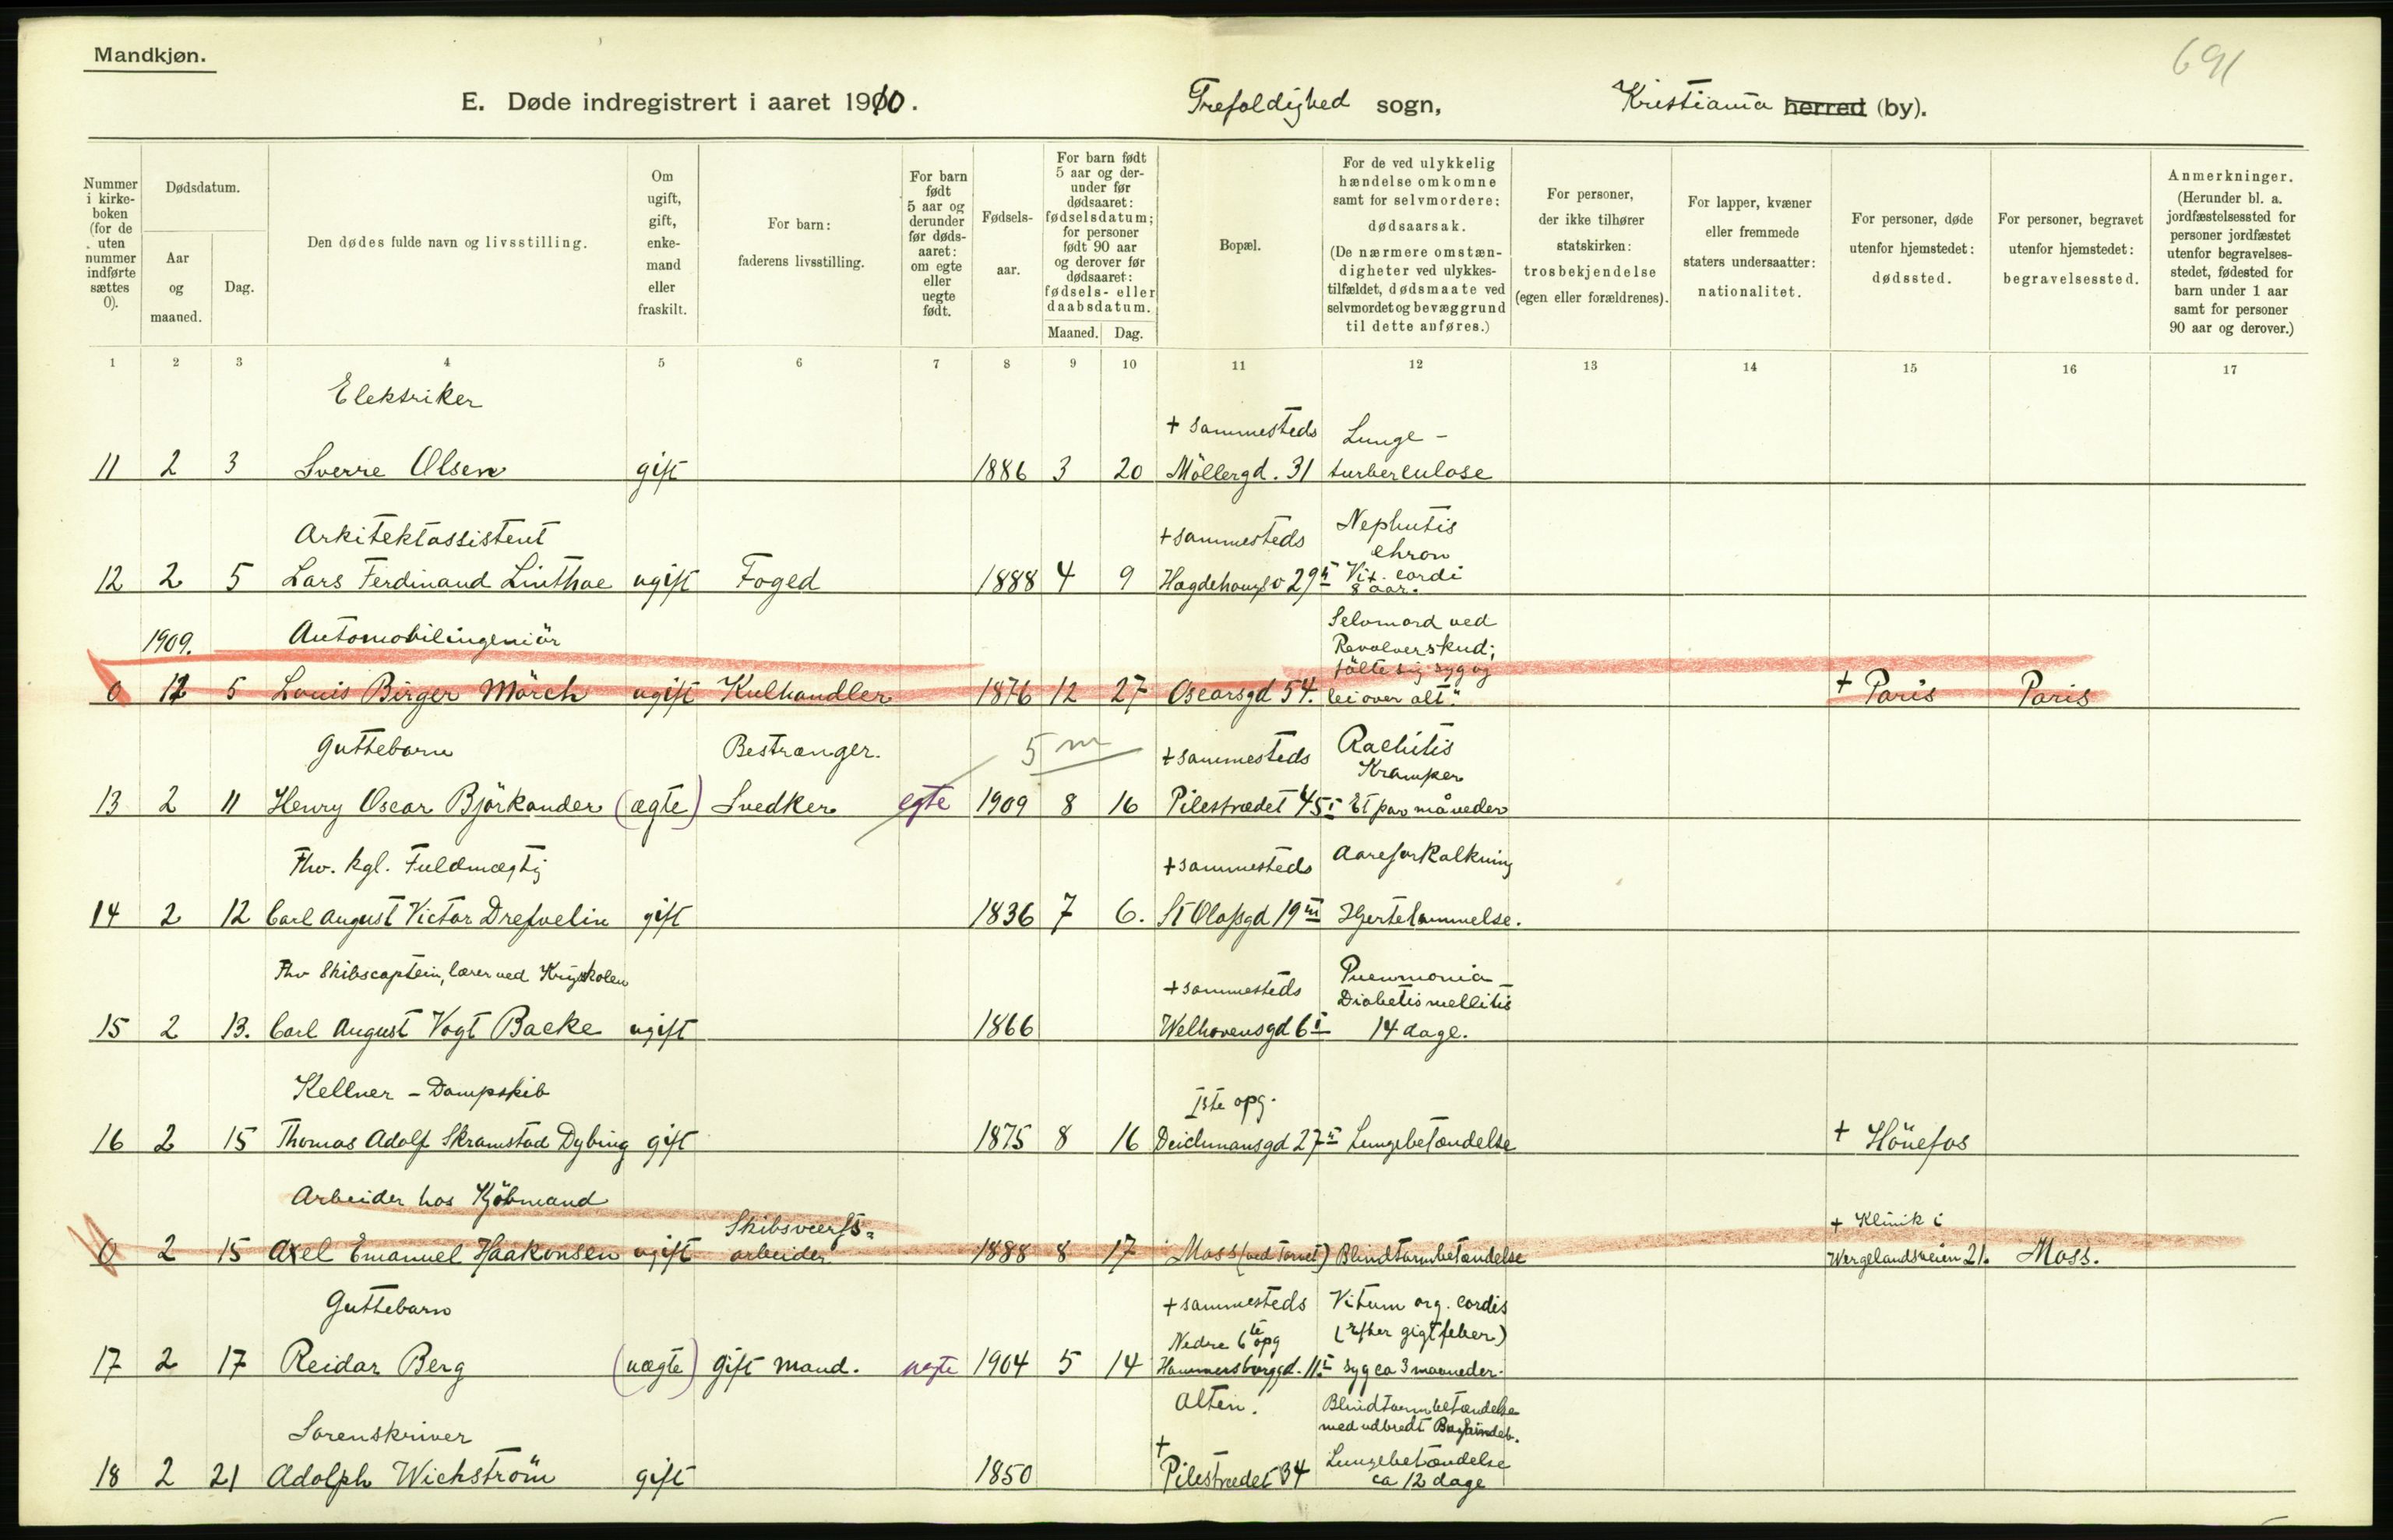 Mandkjøn.
691
E. Døde indregistrert i aaret 1910.
Trefoldighed sogn,
Kristiania herred (by).
Nummer i kirkeboken (for de uten nummer indførte sættes 0).
Dødsdatum.
Aar og maaned.
Dag.
Den dødes fulde navn og livsstilling.
Om ugift, gift, enkemand eller fraskilt.
For barn: faderens livsstilling.
For barn født 5 aar og derunder før dødsaaret: om egte eller uegte født.
Fødselsaar.
For barn født 5 aar og derunder før dødsaaret: fødselsdatum; for personer født 90 aar og derover før dødsaaret: fødsels- eller daabsdatum.
Maaned. Dag.
Bopæl.
For de ved ulykkelig hændelse omkomne samt for selvmordere: dødsaarsak. (De nærmere omstændigheter ved ulykkestilfældet, dødsmaate ved selvmordet og bevæggrund til dette anføres.)
For personer, der ikke tilhører statskirken: trosbekjendelse (egen eller forældrenes).
For lapper, kvæner eller fremmede staters undersaatter: nationalitet.
For personer, døde utenfor hjemstedet: dødssted.
For personer, begravet utenfor hjemstedet: begravelsessted.
Anmerkninger. (Herunder bl. a. jordfæstelsessted for personer jordfæstet utenfor begravelsesstedet, fødested for barn under 1 aar samt for personer 90 aar og derover.)
1 2 3 4 5 6 7 8 9 10 11 12 13 14 15 16 17
Elektriker
+ sammesteds Lunge-
11 2 3 Sverre Olsen gift 1886 3 20 Möllergd. 31 turberculose
Arkitektassistent + sammesteds Nephritis
chron
12 2 5 Lars Ferdinand Linthoe ugift Foged 1888 4 9 Hægdehaugsv 29 II Vit. cordi
8 aar.
1909. Automobilingeniör Selvmord ved
Revolverskud;
fölte sig syg og
0 12 5 Louis Birger Mörch ugift Kulhandler 1876 12 27 Oscarsgd 54. lei over alt". + Paris Paris
Guttebarn Bestranger. 5 m + sammesteds Rachitis
Kramper
13 2 11 Henry Oscar Björkander (ægte) Snedker egte 1909 8 16 Pilestrædet 45 I Et par måneder
Fhv. kgl. Fuldmægtig + sammesteds Aareforkalkning
14 2 12 Carl August Victor Drefvelin gift 1836 7 6. St Olafsgd 19 III Hjertelammelse.
Fhv Skibscaptein, lærer ved Krigsskolen + sammesteds Pneumonia
Diabetis mellitis
15 2 13. Carl August Vogt Backe ugift 1866 Welhavensgd 6 I 14 dage.
Kellner - Dampskib Iste opg.
16 2 15 Thomas Adolf Skramstad Dybing gift 1875 8 16 Deichmansgd 27 II Lungebetændelse + Hönefos
Arbeider hos Kjöbmand Skibsværfts= + Klinik i
0 2 15 Axel Emanuel Haakonsen ugift arbeider 1888 8 17 Moss (ved Torvet) Blindtarmbetændelse Wergelandsveien 21. Moss.
Guttebarn + sammesteds Vitum org. cordis
Nedre 6te opg (efter gigtfeber)
17 2 17 Reidar Berg (uægte) Gift mand. uegte 1904 5 14 Hammersborggd. 11 I syg ca 3 maaneder.
Alten. Blindtarmbetændelse
Sorenskriver med udbredt
+ Lungebetændelse
18 2 21 Adolph Wichström gift 1850 Pilestrædet 34 ca 12 dage